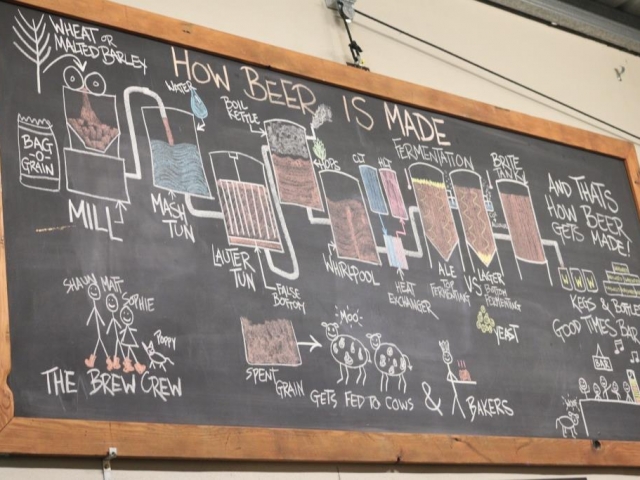 WHEAT OR
MALTED BARLEY
HOW BEER IS MADE
BAG
-O-
GRAIN
MILL
WATER
MASH
TUN
LAUTER
TUN
FALSE
BOTTOM
BOIL
KETTLE
HOPS
WHIRLPOOL
CLT
HLT
HEAT
EXCHANGER
FERMENTATION
ALE
TOP
FERMENTING
VS
LAGER
BOTTOM
FERMENTING
YEAST
BRITE
TANK
AND THATS
HOW BEER
GETS MADE!
KEGS & BOTTLES
GOOD TIMES BAR
BAR
SHAUN MATT
SOPHIE
POPPY
THE BREW CREW
SPENT
GRAIN
MOO!
GETS FED TO COWS & BAKERS